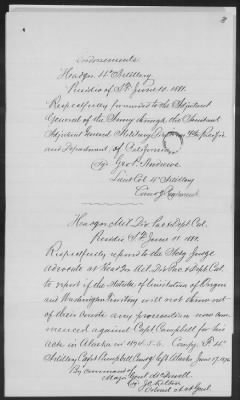 Endorsements
Headqrs. 4th Artillery
Presidio of S.F. June 10. 1881.
Respectfully forwarded to the Adjutant
General of the Army through the Assistant
Adjutant General Military Division of the Pacific
and Department of California
Geo. P. Andrews
Lieut Col 4th Artillery
Comd'g Regiment
Headqrs Mil. Div. Pac & Dept Cal.
Presidio S.F. June 11. 1881.
Respectfully referred to the Judge
Advocate at Head Qrs Mil. Div. Pac & Dept Cal.
to report if the Statute of limitation of Oregon
and Washington Territory will not throw out
of their courts any proceedings now com
menced against Capt Campbell for his
acts in Alaska in 1874.5.6. Compy. F. 4th
Artillery Capt Campbell Comd'g left Alaska June 17. 1876
By command of
Major Genl McDowell